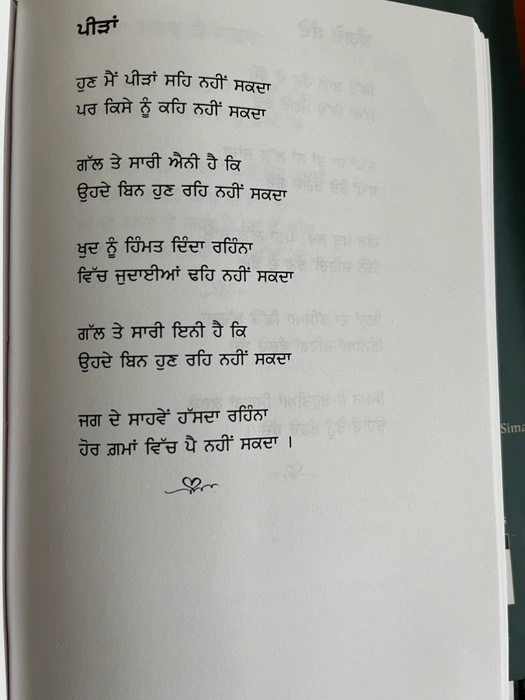 ਪੀੜਾਂ
ਹੁਣ ਮੈਂ ਪੀੜਾਂ ਸਹਿ ਨਹੀਂ ਸਕਦਾ
ਪਰ ਕਿਸੇ ਨੂੰ ਕਹਿ ਨਹੀਂ ਸਕਦਾ
ਗੱਲ ਤੇ ਸਾਰੀ ਐਨੀ ਹੈ ਕਿ
ਉਹਦੇ ਬਿਨ ਹੁਣ ਰਹਿ ਨਹੀਂ ਸਕਦਾ
ਖੁਦ ਨੂੰ ਹਿੰਮਤ ਦਿੰਦਾ ਰਹਿੰਨਾ
ਵਿੱਚ ਜੁਦਾਈਆਂ ਢਹਿ ਨਹੀਂ ਸਕਦਾ
ਗੱਲ ਤੇ ਸਾਰੀ ਇਨੀ ਹੈ ਕਿ
ਉਹਦੇ ਬਿਨ ਹੁਣ ਰਹਿ ਨਹੀਂ ਸਕਦਾ
ਜਗ ਦੇ ਸਾਹਵੇਂ ਹੱਸਦਾ ਰਹਿੰਨਾ
ਹੋਰ ਗ਼ਮਾਂ ਵਿੱਚ ਪੈ ਨਹੀਂ ਸਕਦਾ ।
Sima